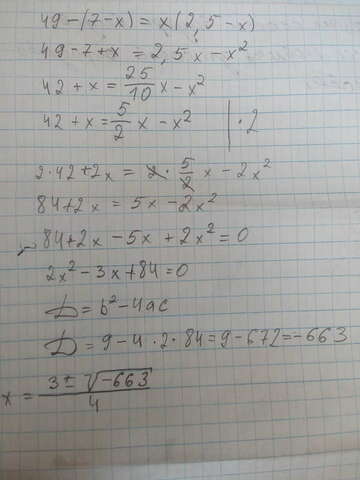 49-(7-x)=x(2,5-x)
49-7+x=2,5x-x²
42+x=25/10x-x²
42+x=5/2x-x² |·2
2·42+2x=2·5/2x-2x²
84+2x=5x-2x²
84+2x-5x+2x²=0
2x²-3x+84=0
D=b²-4ac
D=9-4·2·84=9-672=-663
x=3±√-663/4